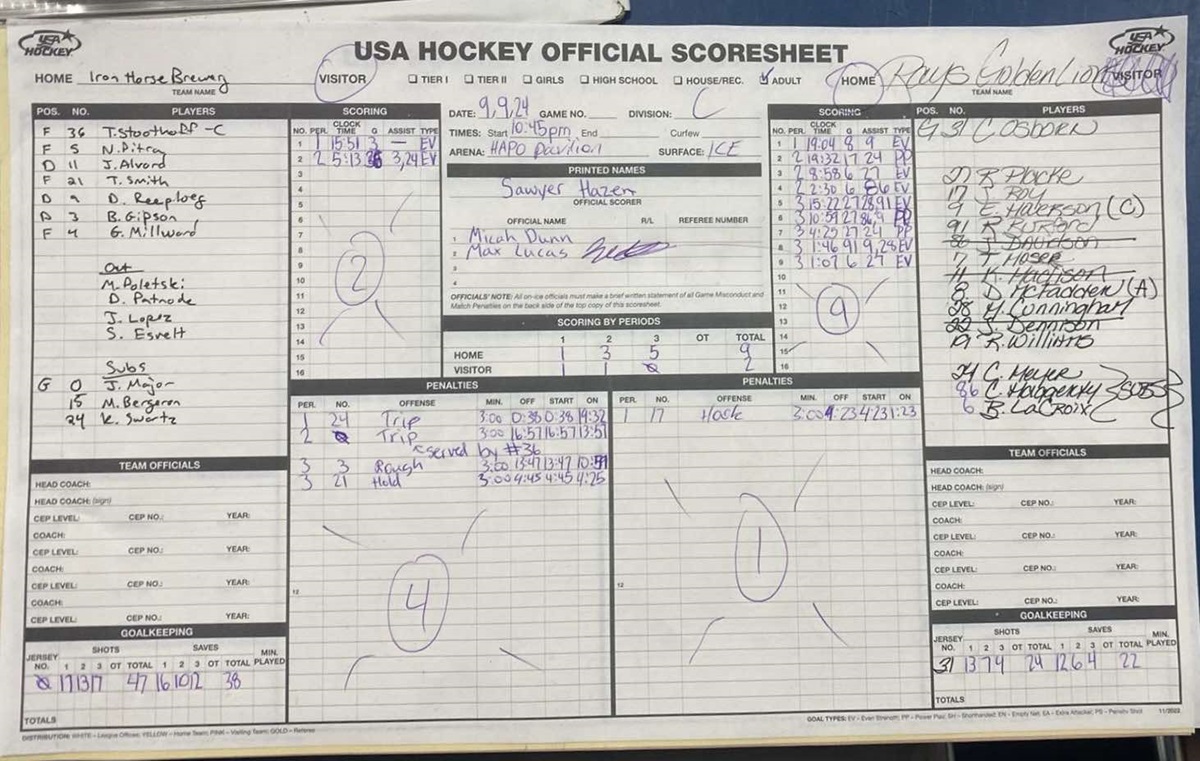 USA HOCKEY
USA HOCKEY OFFICIAL SCORESHEET
USA HOCKEY
HOME Iron Horse Brewery VISITOR
TEAM NAME
☐ TIER I ☐ TIER II ☐ GIRLS ☐ HIGH SCHOOL ☐ HOUSE/REC. ☑ ADULT
HOME Rays Golden Lion VISITOR
TEAM NAME
POS. NO. PLAYERS
F 36 T. Stoothoff -C
F 5 N. Pitray
D 11 J. Alvord
F 21 T. Smith
D 9 D. Reeploeg
D 3 B. Gipson
F 4 G. Millward
Out
M. Poletski
D. Patnode
J. Lopez
S. Esvelt
Subs
G 0 J. Major
15 M. Bergeron
24 K. Swartz
SCORING
NO. PER. CLOCK TIME G ASSIST TYPE
1 1 15:51 3 — EV
2 2 5:13 36 3,24 EV
3
4
5
6
7
8
9
10
11
12
13
14
15
16
2
DATE: 9,9,24 GAME NO. DIVISION: C
TIMES: Start 10:45pm End Curfew
ARENA: HAPO Pavilion SURFACE: ICE
PRINTED NAMES
Sawyer Hazen
OFFICIAL SCORER
OFFICIAL NAME R/L REFEREE NUMBER
1 Micah Dunn
2 Max Lucas
3
4
OFFICIALS' NOTE: All on-ice officials must make a brief written statement of all Game Misconduct and
Match Penalties on the back side of the top copy of this scoresheet.
SCORING BY PERIODS
1 2 3 OT TOTAL
HOME 1 3 5 9
VISITOR 1 1 0 2
SCORING
NO. PER. CLOCK TIME G ASSIST TYPE
1 1 19:04 8 9 EV
2 2 19:32 17 24 PP
3 2 8:58 6 27 EV
4 2 2:30 6 86 EV
5 3 15:22 27 28,91 EV
6 3 10:59 27 86,9 PP
7 3 4:25 27 24 PP
8 3 1:46 91 9,28 EV
9 3 1:07 6 27 EV
10
11
12
13
14
15
16
9
POS. NO. PLAYERS
G 31 C. OSBORN
27 R. Placke
17 J. Roy
9 E. Halverson (C)
91
86 J. Davidson
7 T. Hoser
11 K. Harrison
8 D. McFadden (A)
28 M. Cunningham
22 J. Dennison
19 R. Williams
24 C. Meyer
86 C. Haggerty SUBS
6 B. LaCroix
PENALTIES
PER. NO. OFFENSE MIN. OFF START ON
1 24 Trip 3:00 0:38 0:38 19:32
2 0 Trip 3:00 16:57 16:57 13:57
served by #36
3 3 Rough 3:00 13:47 13:47 10:59
3 21 Hold 3:00 4:45 4:45 4:25
12
4
PENALTIES
PER. NO. OFFENSE MIN. OFF START ON
1 17 Hook 3:00 4:23 4:23 1:23
12
1
TEAM OFFICIALS
HEAD COACH:
HEAD COACH: (sign)
CEP LEVEL: CEP NO.: YEAR:
COACH:
CEP LEVEL: CEP NO.: YEAR:
COACH:
CEP LEVEL: CEP NO.: YEAR:
COACH:
CEP LEVEL: CEP NO.: YEAR:
GOALKEEPING
JERSEY NO. SHOTS 1 2 3 OT TOTAL SAVES 1 2 3 OT TOTAL MIN. PLAYED
0 17 13 17 47 16 10 12 38
TOTALS
TEAM OFFICIALS
HEAD COACH:
HEAD COACH: (sign)
CEP LEVEL: CEP NO.: YEAR:
COACH:
CEP LEVEL: CEP NO.: YEAR:
COACH:
CEP LEVEL: CEP NO.: YEAR:
COACH:
CEP LEVEL: CEP NO.: YEAR:
GOALKEEPING
JERSEY NO. SHOTS 1 2 3 OT TOTAL SAVES 1 2 3 OT TOTAL MIN. PLAYED
31 13 7 4 24 12 6 4 22
TOTALS
DISTRIBUTION: WHITE – League Offices; YELLOW – Home Team; PINK – Visiting Team; GOLD – Referee
GOAL TYPES: EV – Even Strength; PP – Power Play; SH – Shorthanded; EN – Empty Net; EA – Extra Attacker; PS – Penalty Shot 11/2023